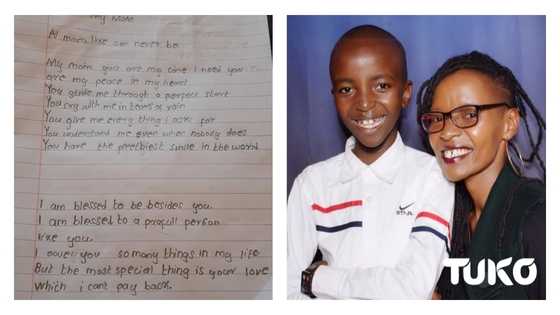 My Mom
A mom like can never be
My mom you are my cane I need you
are my peace in my heart
You guide me through a perfect start
You cry with me in tears or rain
You give me every thing I ask for
You understand me even when nobody does
You have the prettiest smile in the world
I am blessed to be besides you
I am blessed to a person
like you.
I owe you so many things in my life
But the most special thing is your love
which i cant pay back.
TUKO